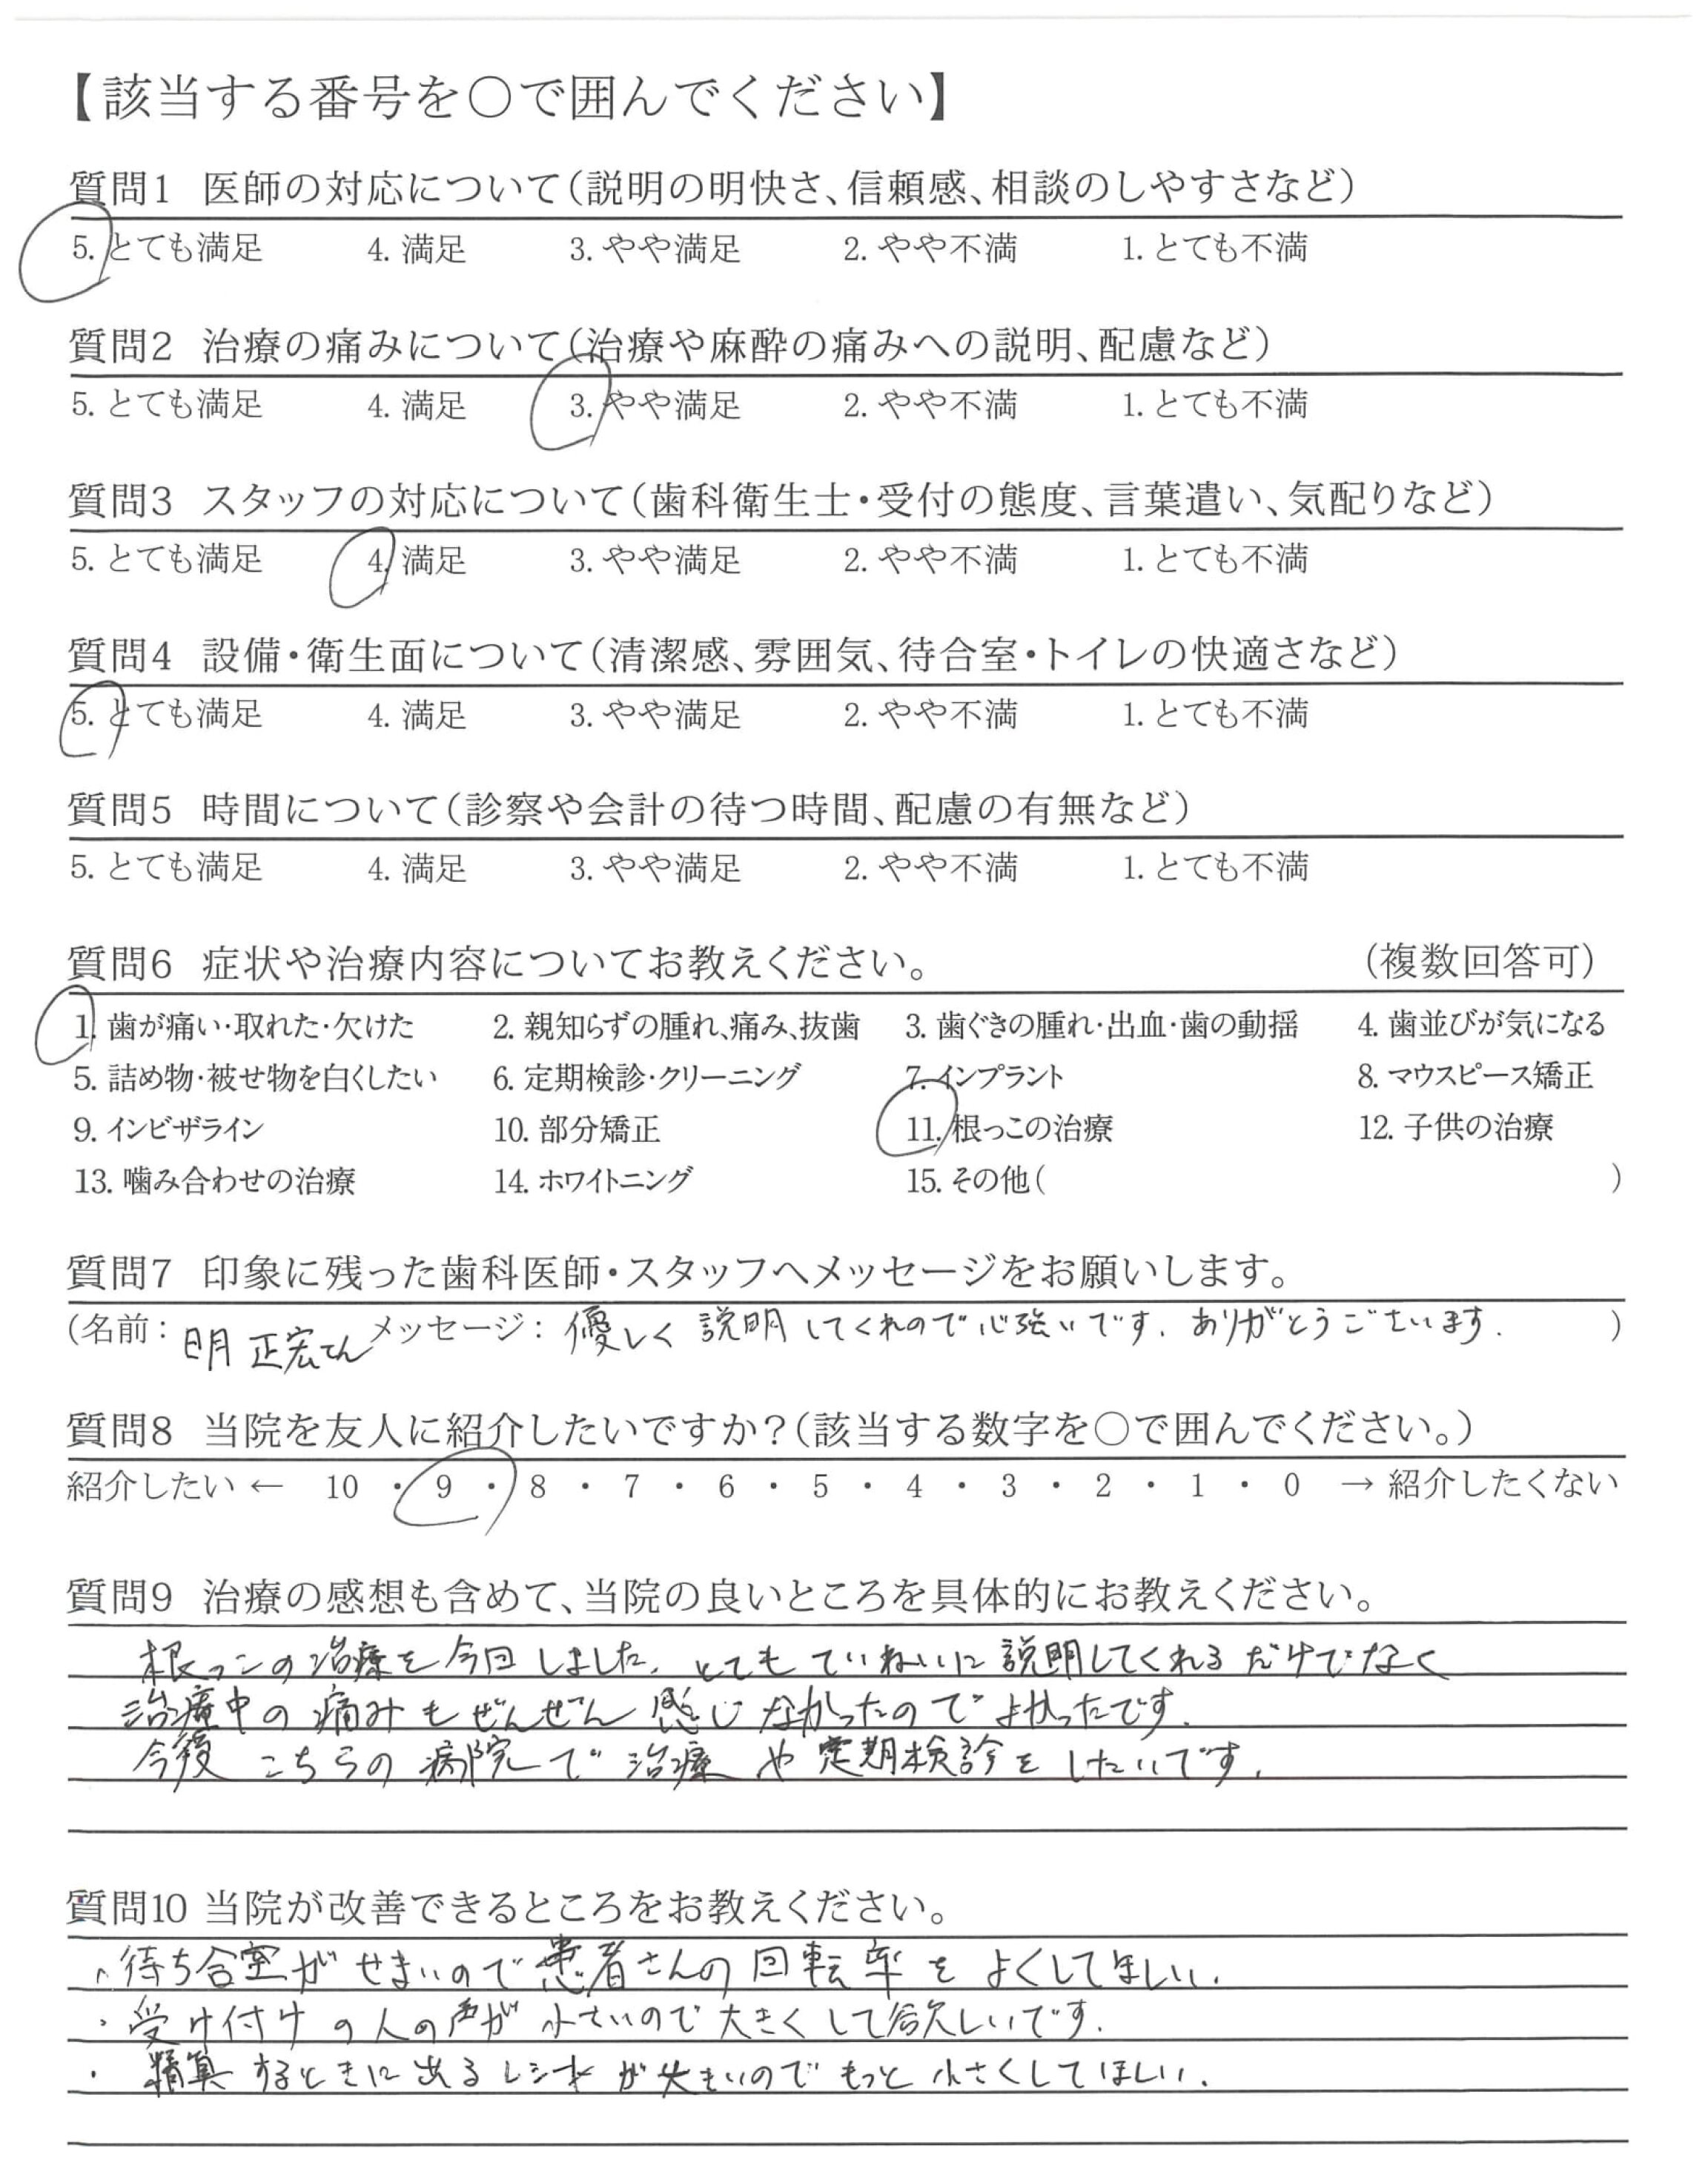 【該当する番号を○で囲んでください】
質問1 医師の対応について(説明の明快さ、信頼感、相談のしやすさなど)
5. とても満足 4. 満足 3. やや満足 2. やや不満 1. とても不満
質問2 治療の痛みについて(治療や麻酔の痛みへの説明、配慮など)
5. とても満足 4. 満足 3. やや満足 2. やや不満 1. とても不満
質問3 スタッフの対応について(歯科衛生士・受付の態度、言葉遣い、気配りなど)
5. とても満足 4. 満足 3. やや満足 2. やや不満 1. とても不満
質問4 設備・衛生面について(清潔感、雰囲気、待合室・トイレの快適さなど)
5. とても満足 4. 満足 3. やや満足 2. やや不満 1. とても不満
質問5 時間について(診察や会計の待つ時間、配慮の有無など)
5. とても満足 4. 満足 3. やや満足 2. やや不満 1. とても不満
質問6 症状や治療内容についてお教えください。 (複数回答可)
1. 歯が痛い・取れた・欠けた 2. 親知らずの腫れ、痛み、抜歯 3. 歯ぐきの腫れ・出血・歯の動揺 4. 歯並びが気になる
5. 詰め物・被せ物を白くしたい 6. 定期検診・クリーニング 7. インプラント 8. マウスピース矯正
9. インビザライン 10. 部分矯正 11. 根っこの治療 12. 子供の治療
13. 噛み合わせの治療 14. ホワイトニング 15. その他( )
質問7 印象に残った歯科医師・スタッフへメッセージをお願いします。
(名前: 明 正宏さん メッセージ: 優しく 説明 してくれので心強いです. ありがとうございます. )
質問8 当院を友人に紹介したいですか?(該当する数字を○で囲んでください。)
紹介したい ← 10 ・ 9 ・ 8 ・ 7 ・ 6 ・ 5 ・ 4 ・ 3 ・ 2 ・ 1 ・ 0 → 紹介したくない
質問9 治療の感想も含めて、当院の良いところを具体的にお教えください。
根っこの治療を今回しました. とてもていねいに説明してくれるだけでなく
治療中の痛みもぜんぜん感じなかったのでよかったです.
今後 こちらの病院で治療や定期検診をしたいです.
質問10 当院が改善できるところをお教えください。
・待ち合室がせまいので患者さんの回転率をよくしてほしい.
・受け付けの人の声が小さいので大きくして欲しいです.
・精算するときに出るレシートが大きいのでもっと小さくしてほしい.